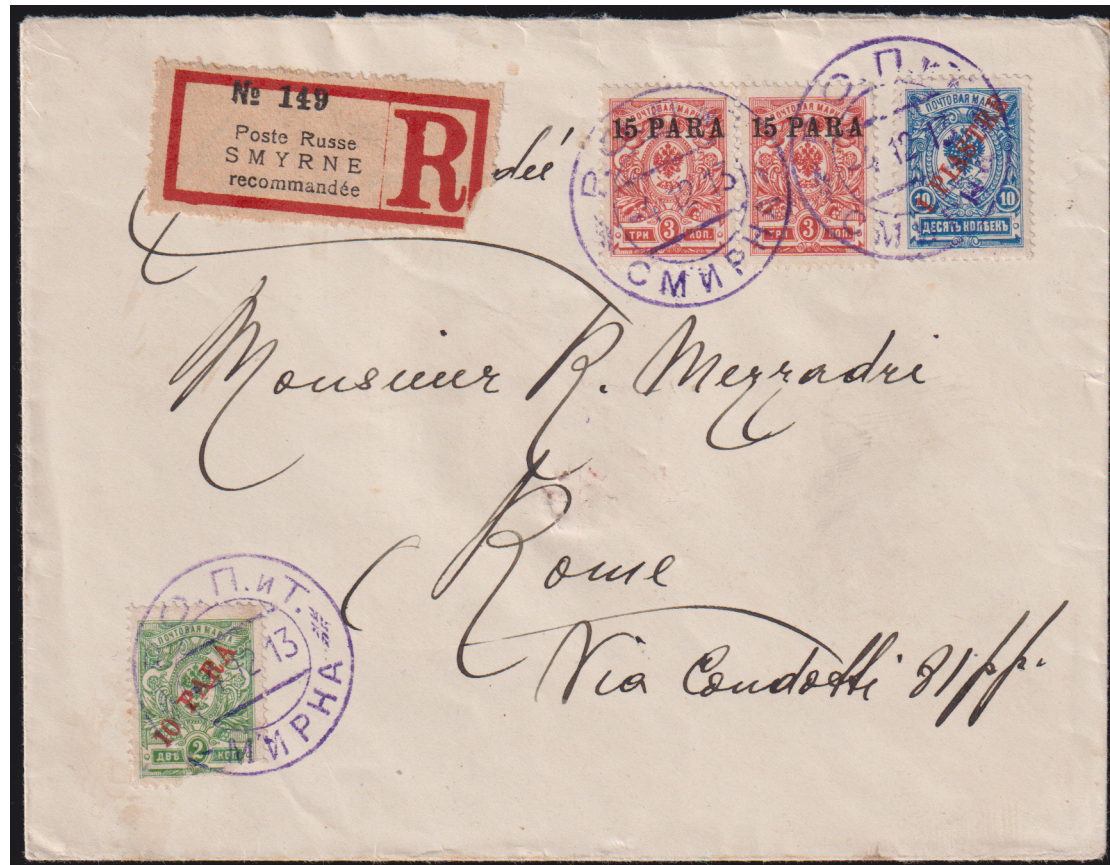 № 149
Poste Russe
SMYRNE
recommandée
R
dée
15 PARA
ТРИ 3 КОП.
15 PARA
ПОЧТОВАЯ МАРКА
ТРИ 3 КОП.
ПОЧТОВАЯ МАРКА
1 PIASTRE
10 10
ДЕСЯТЬ КОПѢЕКЪ
СМИРНА
Monsieur R. Mezzadri
Rome
Via Condotti 31 pp.
О.П.иТ.
13
СМИРНА
ПОЧТОВАЯ МАРКА
10 PARA
ДВѢ 2 КОП.